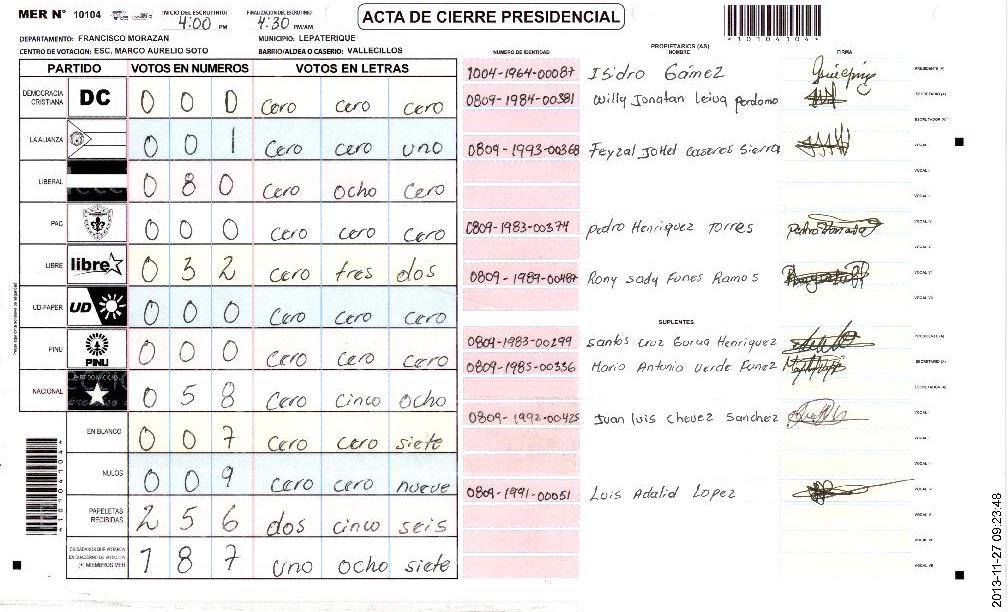 MER N° 10104 INICIO DEL ESCRUTINIO: 4:00 PM FINALIZACION DEL ESCRUTINIO: 4:30 PM/AM
ACTA DE CIERRE PRESIDENCIAL
*10104104*
DEPARTAMENTO: FRANCISCO MORAZAN MUNICIPIO: LEPATERIQUE
CENTRO DE VOTACION: ESC. MARCO AURELIO SOTO BARRIO/ALDEA O CASERIO: VALLECILLOS
PARTIDO VOTOS EN NUMEROS VOTOS EN LETRAS
DEMOCRACIA CRISTIANA DC 0 0 0 cero cero cero
LA ALIANZA 0 0 1 cero cero uno
LIBERAL 0 8 0 cero ocho cero
PAC 0 0 0 cero cero cero
LIBRE libre 0 3 2 cero tres dos
UD-FAPER UD 0 0 0 cero cero cero
PINU PINU 0 0 0 cero cero cero
NACIONAL PARTIDO NACIONAL 0 5 8 cero cinco ocho
EN BLANCO 0 0 7 cero cero siete
NULOS 0 0 9 cero cero nueve
PAPELETAS RECIBIDAS 2 5 6 dos cinco seis
CIUDADANOS QUE VOTARON EN CUADERNO DE VOTACION (+) MIEMBROS MER 1 8 7 uno ocho siete
PROPIETARIOS (AS)
NUMERO DE IDENTIDAD NOMBRE FIRMA
1004-1964-00087 Isidro Gámez PRESIDENTE (A)
0809-1984-00381 Willy Jonatan Leiva perdomo SECRETARIO (A)
ESCRUTADOR (A)
0809-1993-00368 Feyzal Johel caseres Sierra VOCAL I
VOCAL II
VOCAL III
0809-1983-00374 Pedro Henriquez Torres VOCAL IV
VOCAL V
0809-1989-00487 Rony Sady Funes Ramos VOCAL VI
VOCAL VII
SUPLENTES
0809-1983-00299 Santos Cruz Henriquez PRESIDENTE (A)
0809-1985-00336 Mario Antonio verde Funez SECRETARIO (A)
ESCRUTADOR (A)
0809-1992-00425 Juan Luis Chevez Sanchez VOCAL I
VOCAL II
VOCAL III
0809-1991-00051 Luis Adalid Lopez VOCAL IV
VOCAL V
VOCAL VI
VOCAL VII
2013-11-27 09:23:48